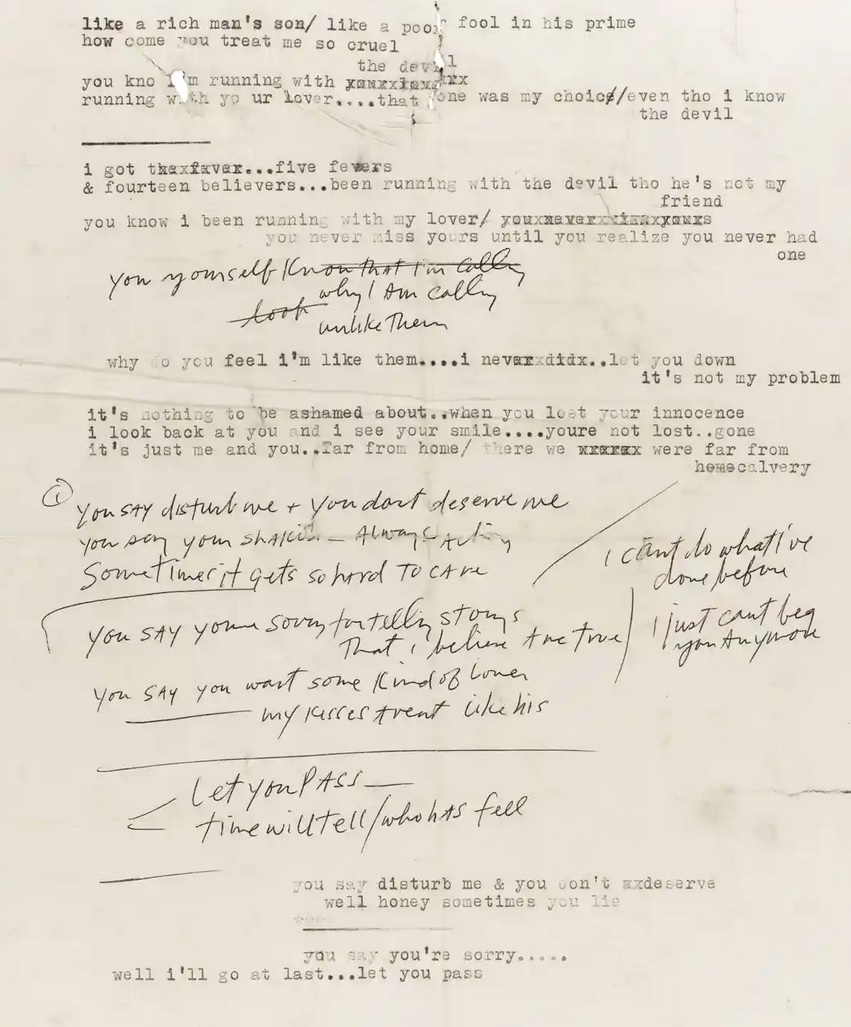 like a rich man's son/ like a poor fool in his prime
how come you treat me so cruel
the devil
you kno i'm running with
running with yo ur lover....that one was my choice//even tho i know
the devil
i got thexfever...five fevers
& fourteen believers...been running with the devil tho he's not my
friend
you know i been running with my lover/ youxneverxxxxxxyours
you never miss yours until you realize you never had
one
you yourself know that i'm calling
why I Am calling
look
unlike Them
why do you feel i'm like them....i neverxdidx..let you down
it's not my problem
it's nothing to be ashamed about..when you lost your innocence
i look back at you and i see your smile....youre not lost..gone
it's just me and you..far from home/ there we xxxxxx were far from
homecalvery
1 you SAY disturb me + you dont deserve me
you say your shakin – Always Acting
Sometimes it gets so hard To care
i cant do what i've
done before
you SAY youre sorry for telling storys
That i believe Are true
I just cant beg
you Anymore
you SAY you want some kind of lover
my kisses Arent like his
Let you PASS —
time will tell/who hAs fell
you say disturb me & you don't xxdeserve
well honey sometimes you lie
you say you're sorry.....
well i'll go at last...let you pass